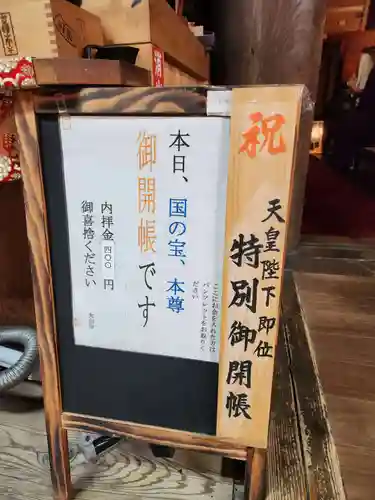 祝
天皇陛下即位
特別御開帳
本日、国の宝、本尊
御開帳です
ここにお金を入れた方は
パンフレットをお取りください
内拝金四〇〇円
御喜捨ください